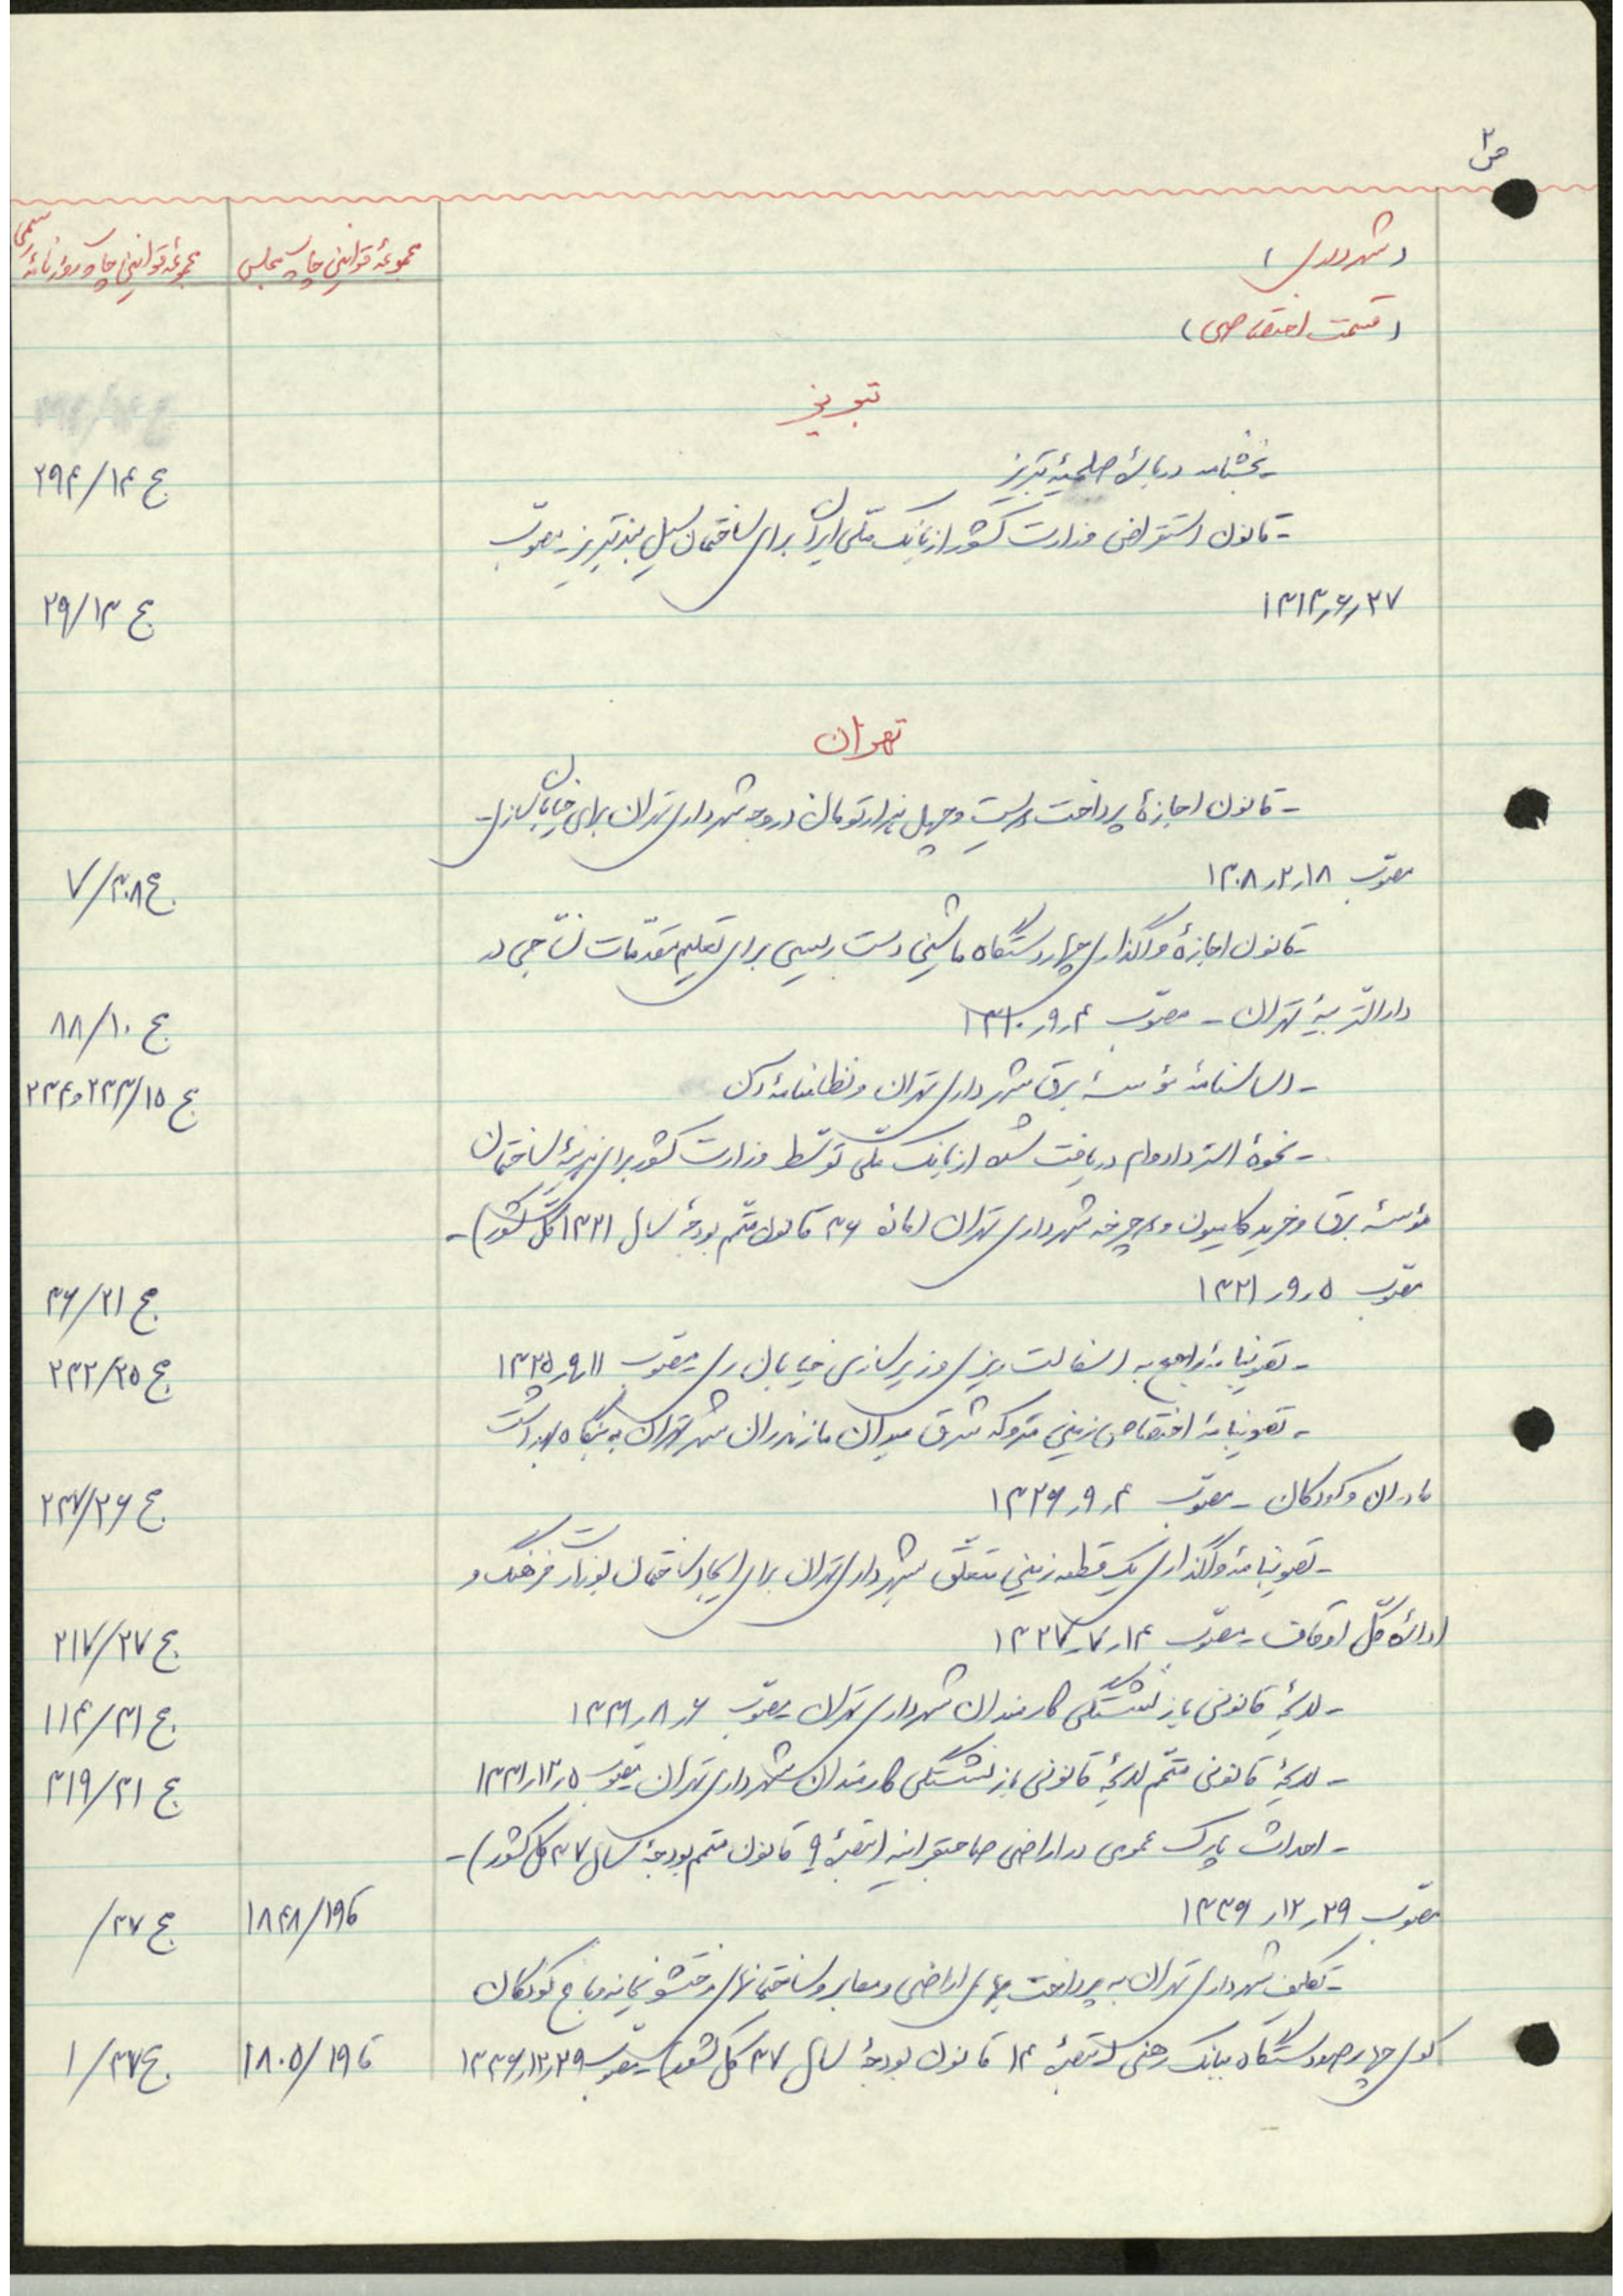 ص ۲
(شهرداری)
مجموعهٔ قوانین چاپ مجلس
مجموعهٔ قوانین چاپ روزنامهٔ رسمی
(قسمت اختصاصی)
تبریز
- بخشنامه دربارهٔ صلحیهٔ تبریز
ج ۲۹۴/۱۴
- قانون استقراض وزارت کشور از بانک ملّی ایران برای ساختمان سیل بند تبریز - مصوّب
۱۳۱۳٫۶٫۲۷
ج ۲۹/۱۳
تهران
- قانون اجازهٔ پرداخت دویست و چهل هزار تومان در وجه شهرداری تهران برای خیابان سازی -
مصوّب ۱۳۰۸٫۲٫۱۸
ج ۷/۳۰۸
- قانون اجازهٔ واگذاری چهار دستگاه ماشین دست ریسی برای تعلیم مقدّمات نسّاجی در
دارالتربیهٔ تهران - مصوّب ۱۳۱۰٫۹٫۴
ج ۸۸/۱۰
- اساسنامهٔ مؤسسهٔ برق شهرداری تهران و نظامنامهٔ آن
ج ۲۳۴و۲۳۳/۱۵
- نحوهٔ استرداد وام دریافت شده از بانک ملّی توسّط وزارت کشور برای هزینهٔ ساختمان
مؤسسهٔ برق و خرید کامیون و چرخه شهرداری تهران (مادهٔ ۳۶ قانون متمّم بودجهٔ سال ۱۳۲۱ کلّ کشور) -
مصوّب ۱۳۲۱٫۹٫۵
ج ۳۶/۲۱
- تصویبنامهٔ راجع به اسفالت ریزی و زیرسازی خیابان ری مصوّب ۱۳۲۵٫۹٫۱۱
ج ۲۳۲/۲۵
- تصویبنامهٔ اختصاص زمین متروکه شرق میدان مازندران شهر تهران به بنگاه بهداشت
مادران و کودکان - مصوّب ۱۳۲۶٫۹٫۴
ج ۲۳۷/۲۶
- تصویبنامهٔ واگذاری یک قطعه زمین متعلّق بشهرداری تهران برای ایجاد ساختمان بوزارت فرهنگ و
ادارهٔ کلّ اوقاف - مصوّب ۱۳۲۷٫۷٫۱۴
ج ۲۱۷/۲۷
- لایحهٔ قانونی بازنشستگی کارمندان شهرداری تهران مصوّب ۱۳۳۱٫۸٫۶
ج ۱۱۴/۳۱
- لایحهٔ قانونی متمّم لایحهٔ قانونی بازنشستگی کارمندان شهرداری تهران مصوّب ۱۳۳۱٫۱۲٫۵
ج ۳۱۹/۳۱
- احداث پارک عمومی در اراضی صاحبقرانیه (تبصرهٔ ۹ قانون متمم بودجهٔ سال ۳۷ کل کشور) -
مصوّب ۱۳۳۶٫۱۲٫۲۹
ق۱۸۴۸/۱۹
ج ۳۷/
- تکلیف شهرداری تهران به پرداخت بهای اراضی و معابر و ساختمانهای رختشویخانه و باغ کودکان
کوی چهارصد دستگاه ببانک رهنی (تبصرهٔ ۱۴ قانون بودجهٔ سال ۳۷ کل کشور) - مصوّب ۱۳۳۶٫۱۲٫۲۹
ق۱۸۰۵/۱۹
ج ۱/۳۷